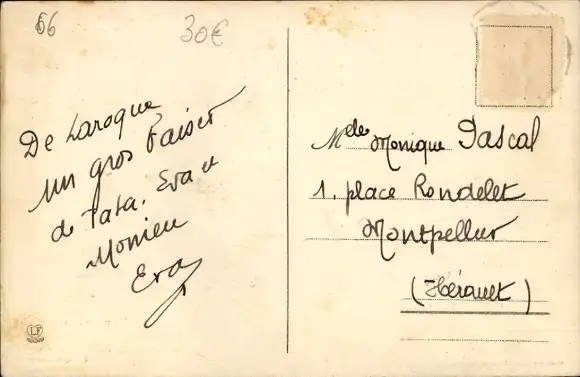 66
30€
De Laroque
un gros baiser
de Tata. Eva et
Monieu
Eva
LF
Melle Monique Pascal
1, place Rondelet
Montpellier
(Hérault)